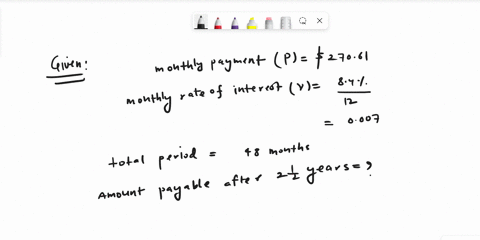 Given:
monthly payment (P) = $270.61
monthly rate of interest (r) = 8.4% / 12
= 0.007
total period = 48 months
Amount payable after 2 1/2 years = ?